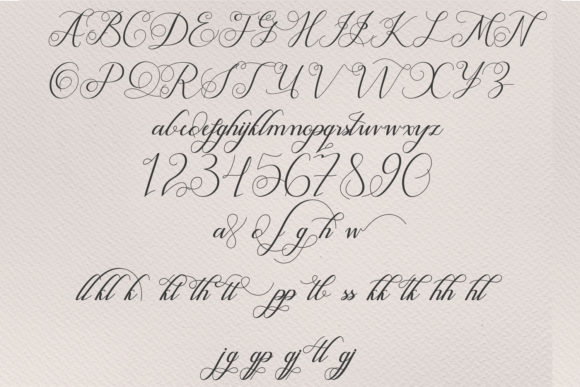 A B C D E F G H I J K L M N
O P Q R S T U V W X Y Z
abcdefghijklmnopqrstuvwxyz
1234567890
a & e f g h w
ll kl k kt th tt pp tb ss kk tk hh ht
jg gp gj tl gj